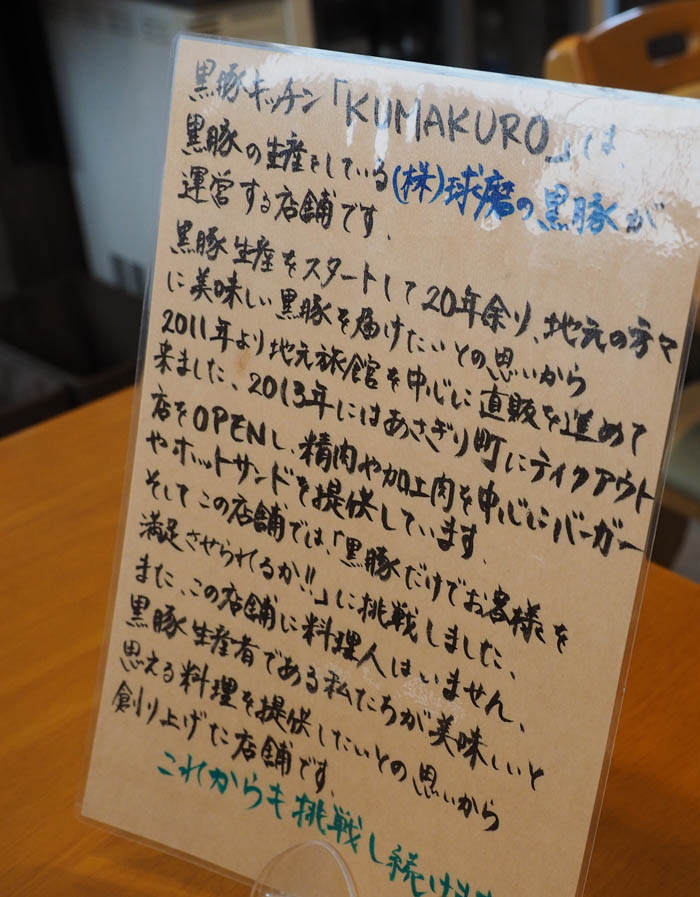 黒豚キッチン「KUMAKURO」は、
黒豚の生産をしている(株)球磨の黒豚が
運営する店舗です。
黒豚生産をスタートして20年余り、地元の方々
に美味しい黒豚を届けたいとの思いから
2011年より地元旅館を中心に直販を進めて
来ました、2013年にはあさぎり町にテイクアウト
店をOPENし、精肉や加工肉を中心にバーガー
やホットサンドを提供しています。
そしてこの店舗では、「黒豚だけでお客様を
満足させられるか!!」に挑戦しました、
また、この店舗に料理人はいません、
黒豚生産者である私たちが美味しいと
思える料理を提供したいとの思いから
創り上げた店舗です。
これからも挑戦し続けま